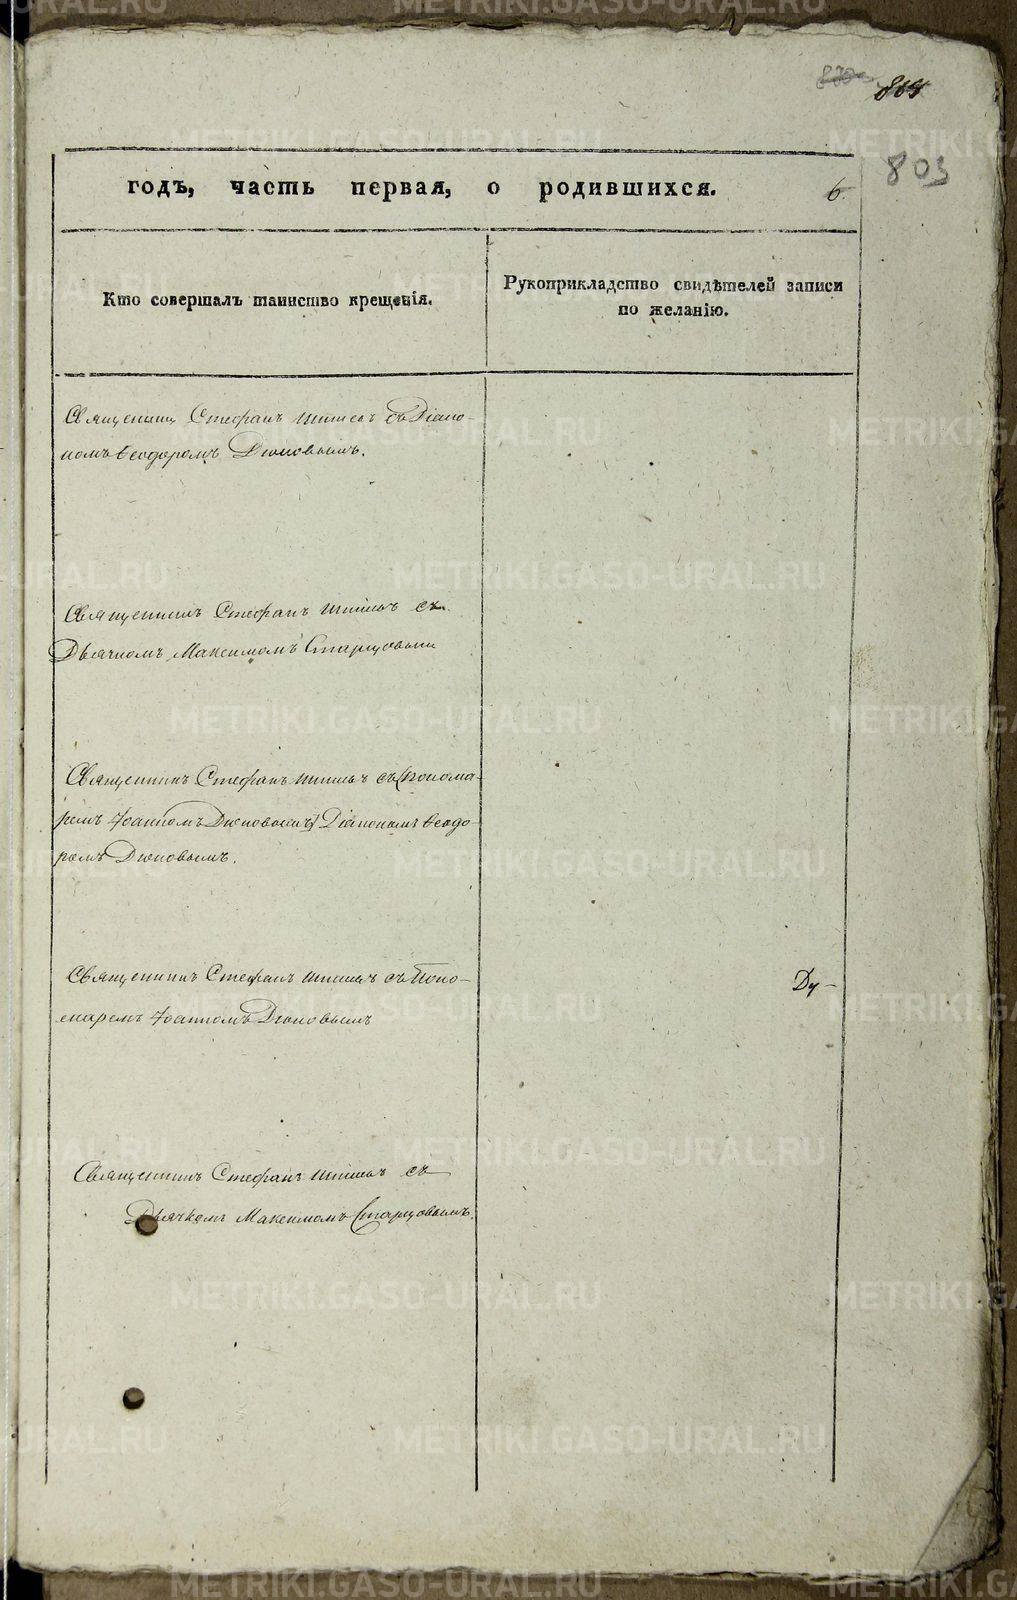 803
годъ, часть первая, о родившихся.
6.
Кто совершалъ таинство крещенія.
Рукоприкладство свидѣтелей записи
по желанію.
Священникъ Стефанъ съ Діако-
номъ Ѳеодоромъ
Священникъ Стефанъ съ
Дьячкомъ Максимомъ Старцовымъ
Священникъ Стефанъ съ Понома-
ремъ Іоанномъ Діакономъ Ѳеодо-
ромъ
Священникъ Стефанъ съ Поно-
маремъ Іоанномъ
Ду-
Священникъ Стефанъ съ
Дьячкомъ Максимомъ Старцовымъ.
METRIKI.GASO-URAL.RU